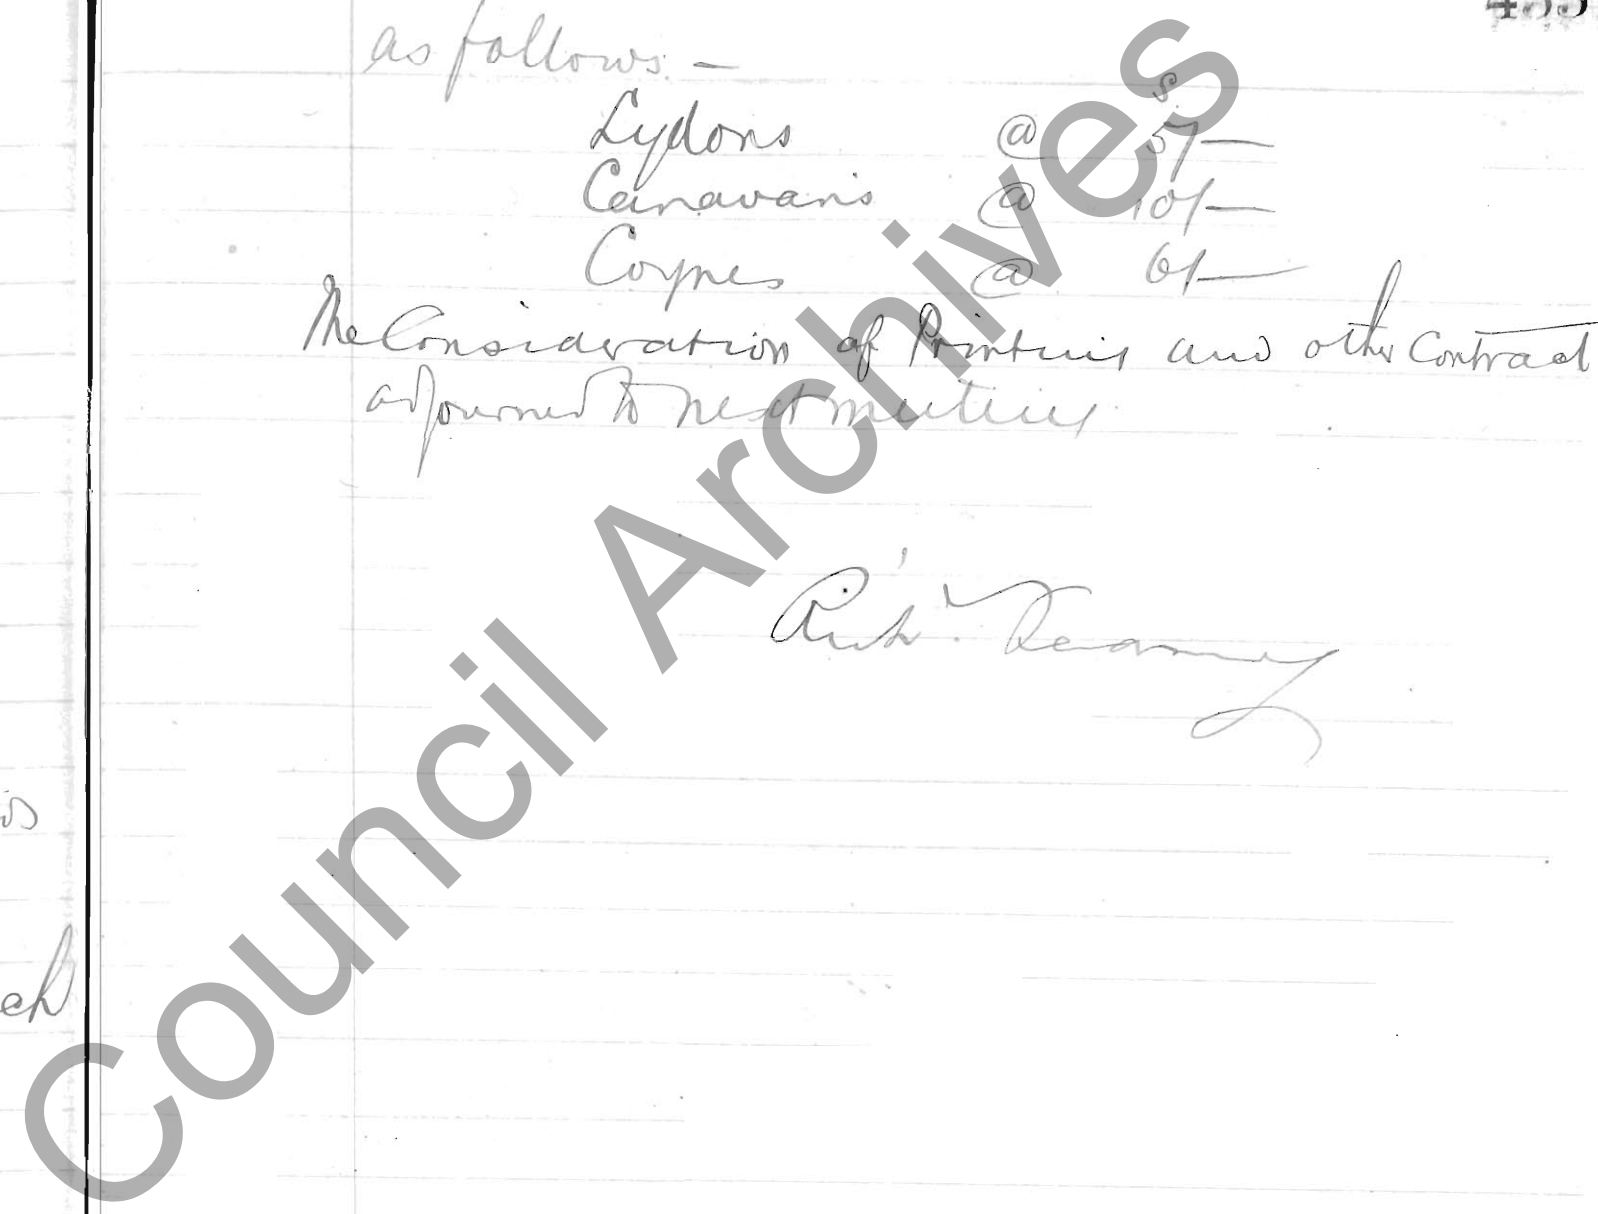 as follows. —
s.
Lydons @ 5/—
Canavans @ 10/—
Coynes @ 6/—
The Consideration of Printing and other Contract
adjourned to next meeting
Richd. Kearney
ch
Council Archives